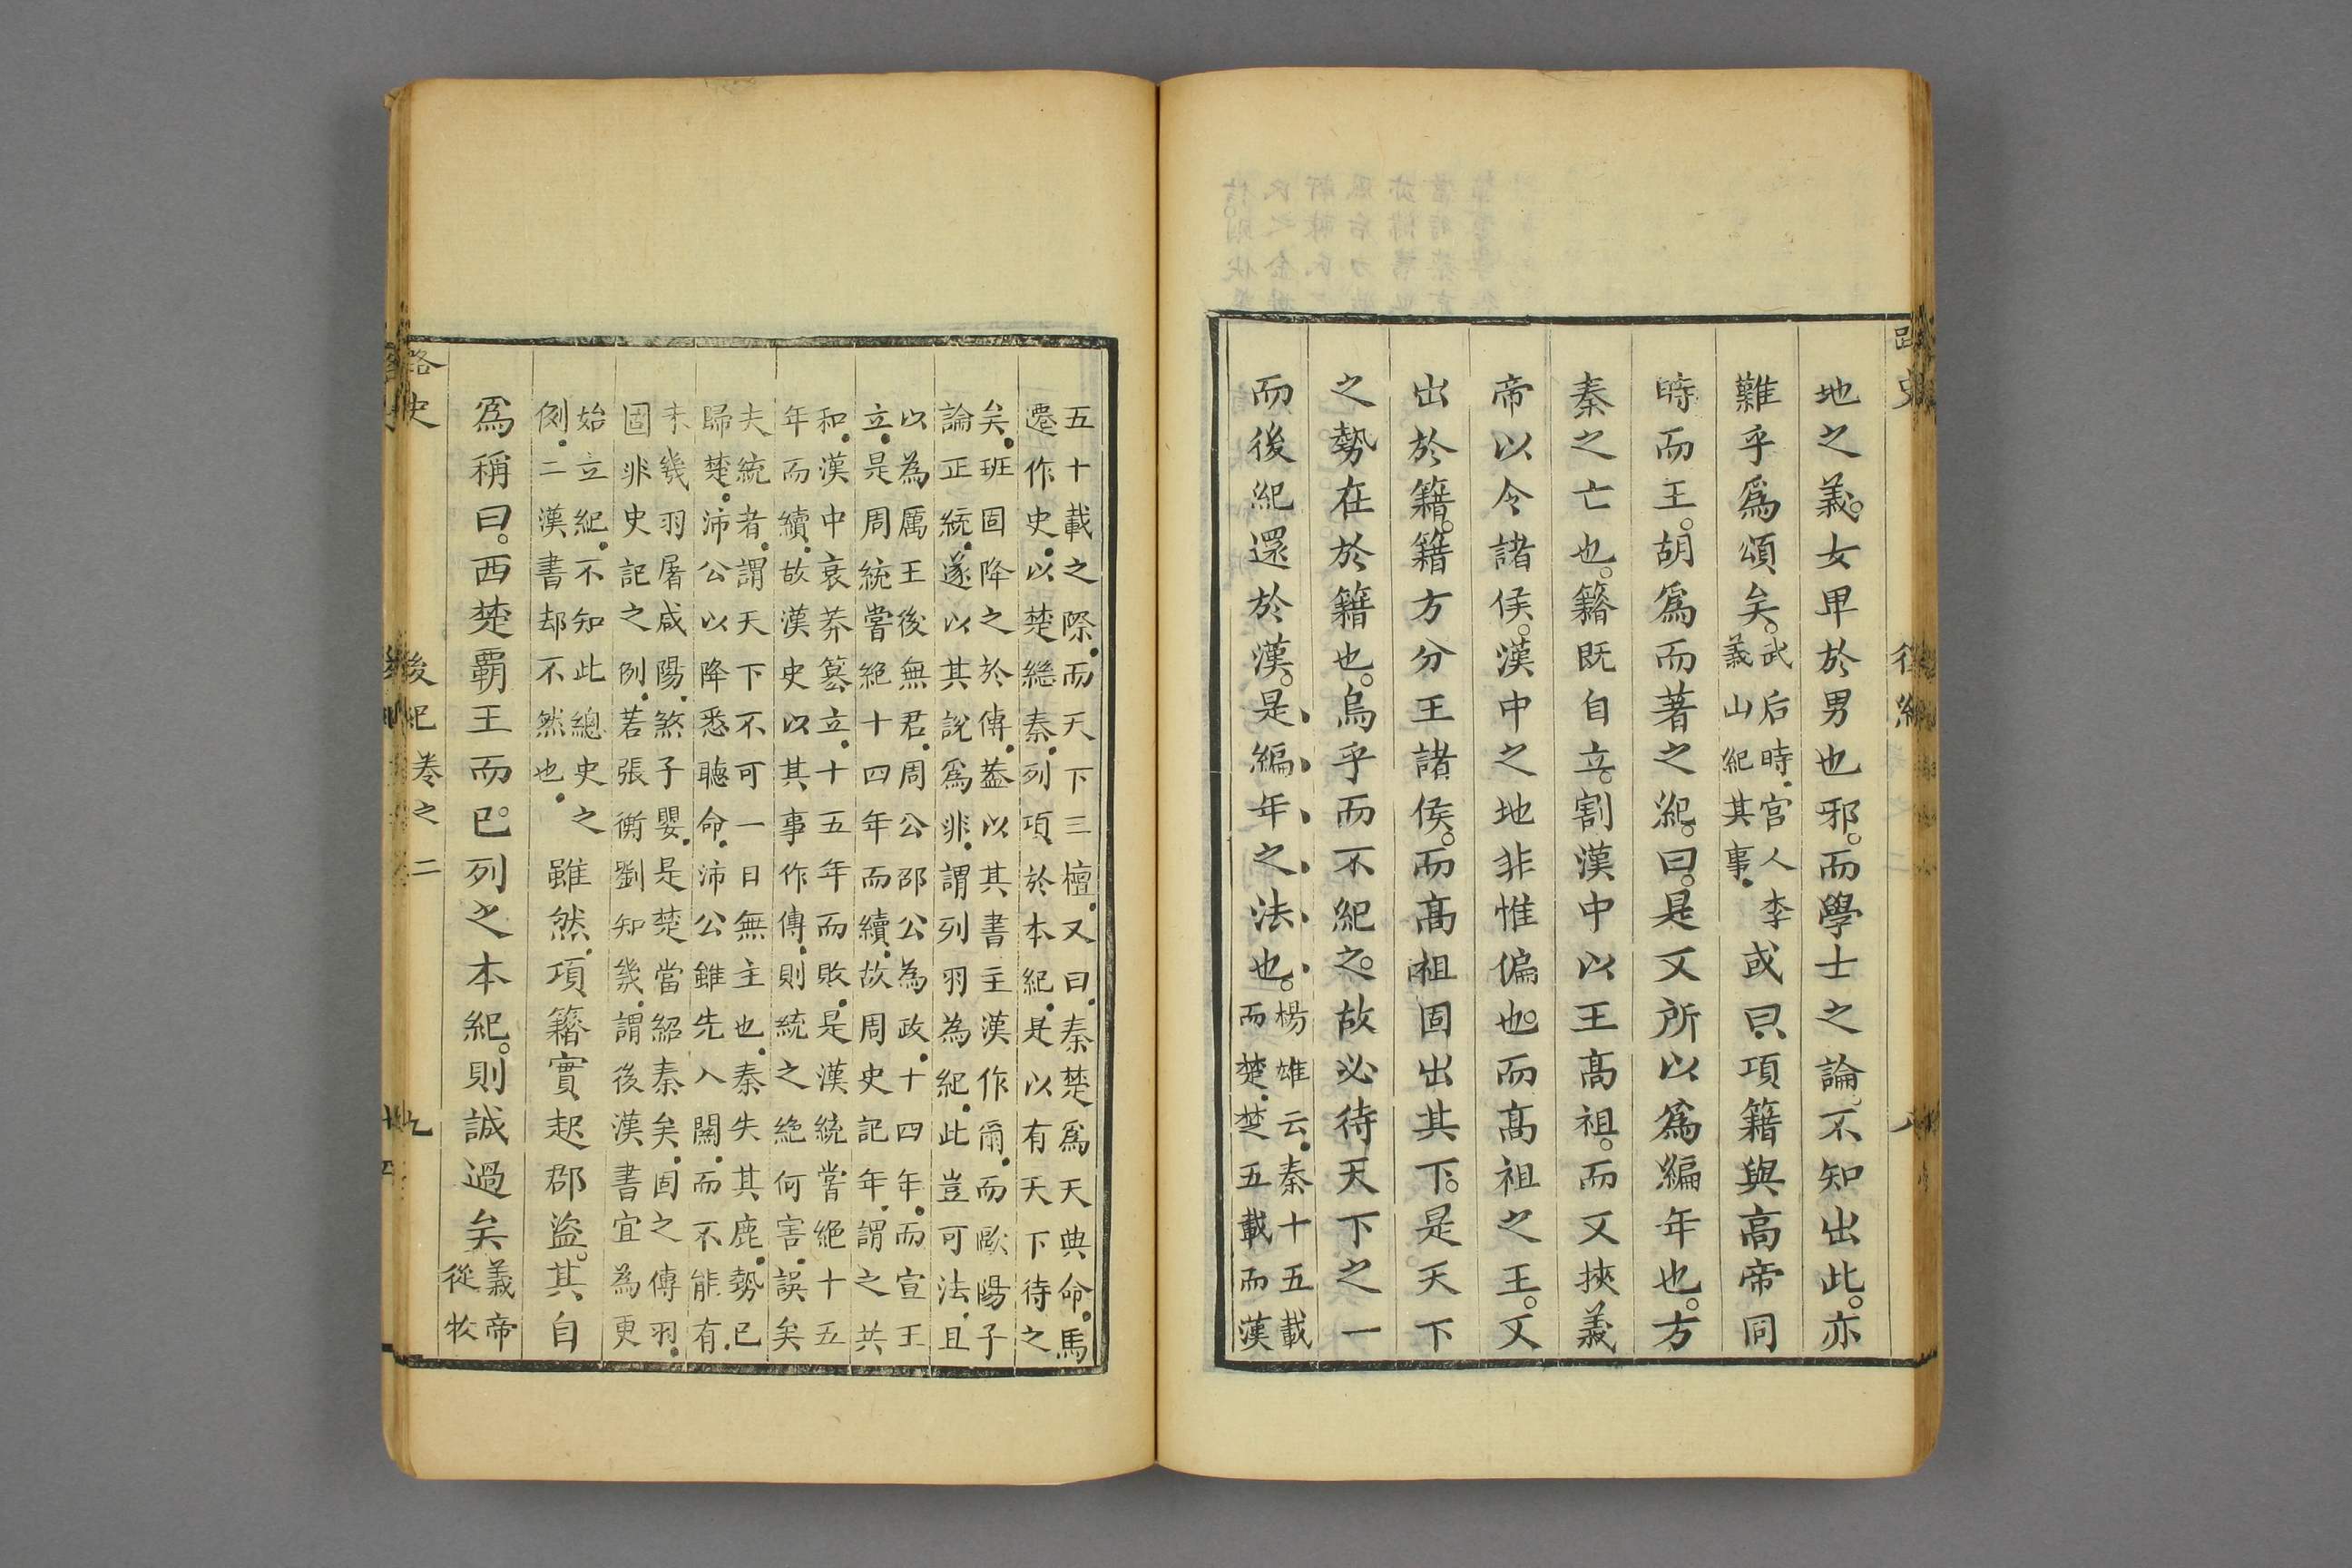 地之義。女卑於男也邪。而學士之論。不知出此。亦
難乎爲頌矣。武后時。宮人李義山紀其事。或曰。項籍與高帝同
時而王。胡爲而著之紀。曰。是又所以爲編年也。方
秦之亡也。籍既自立。割漢中以王高祖。而又挾義
帝以令諸侯。漢中之地非惟偏也。而高祖之王。又
出於籍。籍方分王諸侯。而高祖固出其下。是天下
之勢在於籍也。烏乎而不紀之。故必待天下之一
而後紀還於漢。是編年之法也。楊雄云。秦十五載而楚。楚五載而漢
五十載之際。而天下三檀。又曰。秦楚爲天典命。馬
遷作史。以楚繼秦。列項於本紀。是以有天下待之
矣。班固降之於傳。葢以其書主漢作爾。而歐陽子
論正統。遂以其說爲非。謂列羽為紀。此豈可法。且
以為厲王後無君。周公邵公為政。十四年。而宣王
立。是周統嘗絕十四年而續。故周史記年。謂之共
和。漢中衰莽篡立。十五年而敗。是漢統嘗絕十五
年而續。故漢史以其事作傳。則統之絶何害。誤矣
夫統者。謂天下不可一日無主也。秦失其鹿。勢已
歸楚。沛公以降悉聽命。沛公雖先入關。而不能有。
未幾羽屠咸陽。煞子嬰。是楚當紹秦矣。固之傳羽。
固非史記之例。若張衡劉知幾。謂後漢書宜為更
始立紀。不知此總史之
例。二漢書却不然也。雖然。項籍實起郡盜。其自
爲稱曰。西楚覇王而已。列之本紀。則誠過矣義帝從牧
路史 後紀卷之二 九